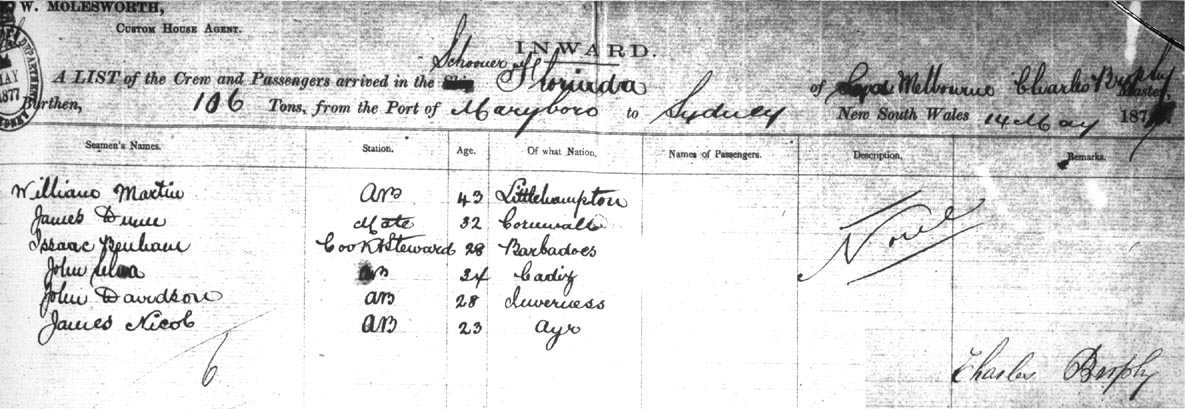 W. MOLESWORTH,
CUSTOM HOUSE AGENT.
MAY
1877
INWARD.
Schooner
A LIST of the Crew and Passengers arrived in the Ship Florinda of Melbourne Charles Brophy Master,
Burthen, 106 Tons, from the Port of Maryboro to Sydney New South Wales 14 May 1877
Seamen's Names. Station. Age. Of what Nation. Names of Passengers. Description. Remarks.
William Martin AB 43 Littlehampton
James Dunn Mate 32 Cornwall
Issaac Benham Cook & Steward 28 Barbadoes
John AB 24 Cadiz
John Davidson AB 28 Inverness
James Nicol AB 23 Ayr
None
6
Charles Brophy